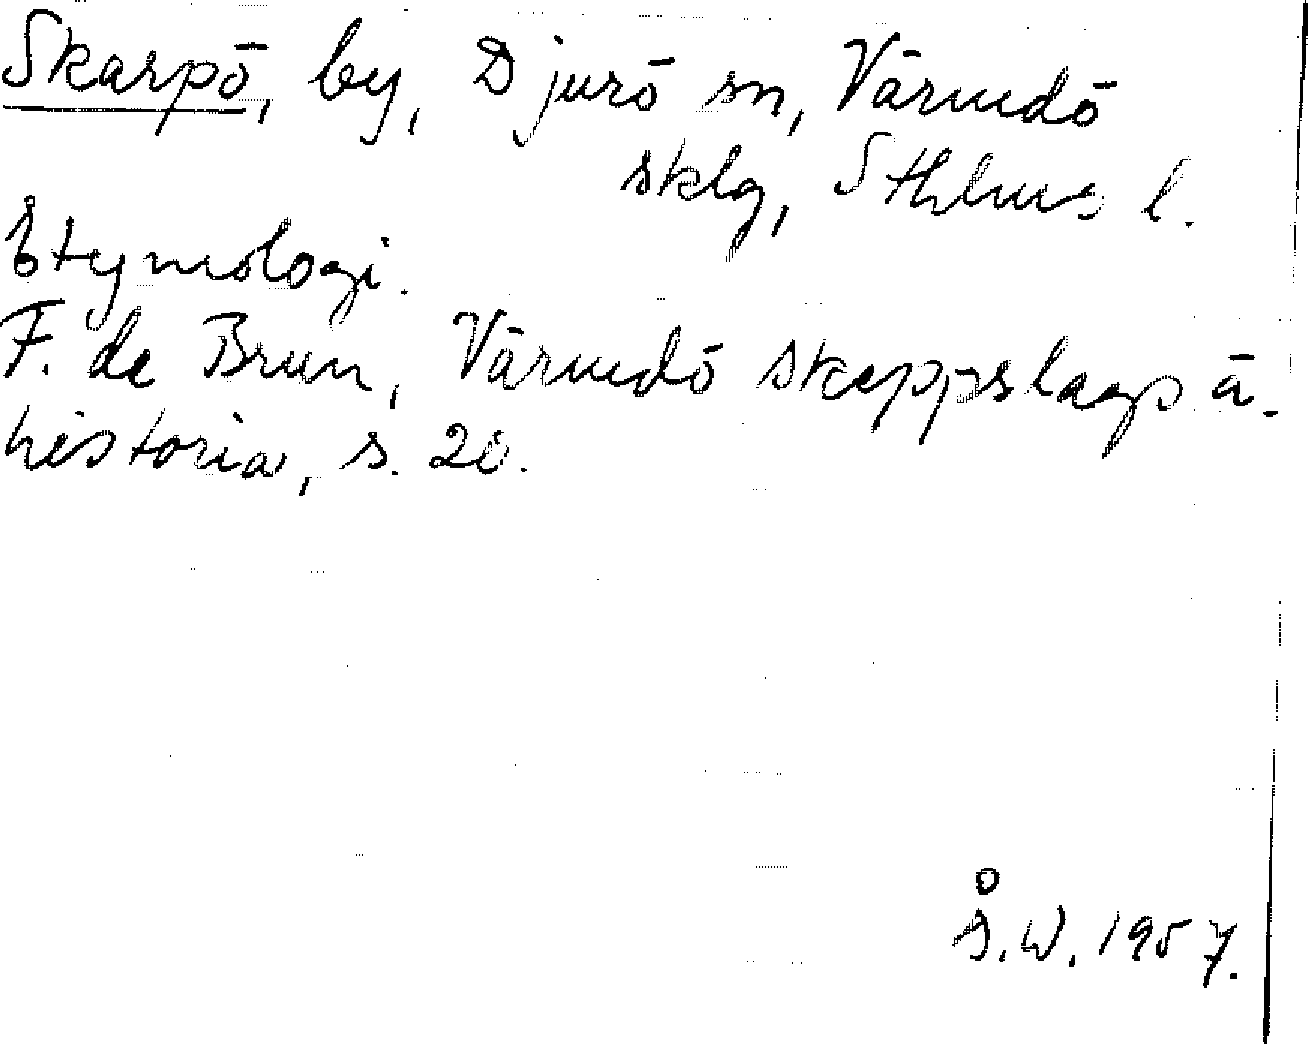 Skarpö, by, Djurö sn, Värmdö
sklg, Sthlms l.
Etymologi.
F. de Brun, Värmdö skeppslags ä.
historia, s. 20.
Å.W. 1957.